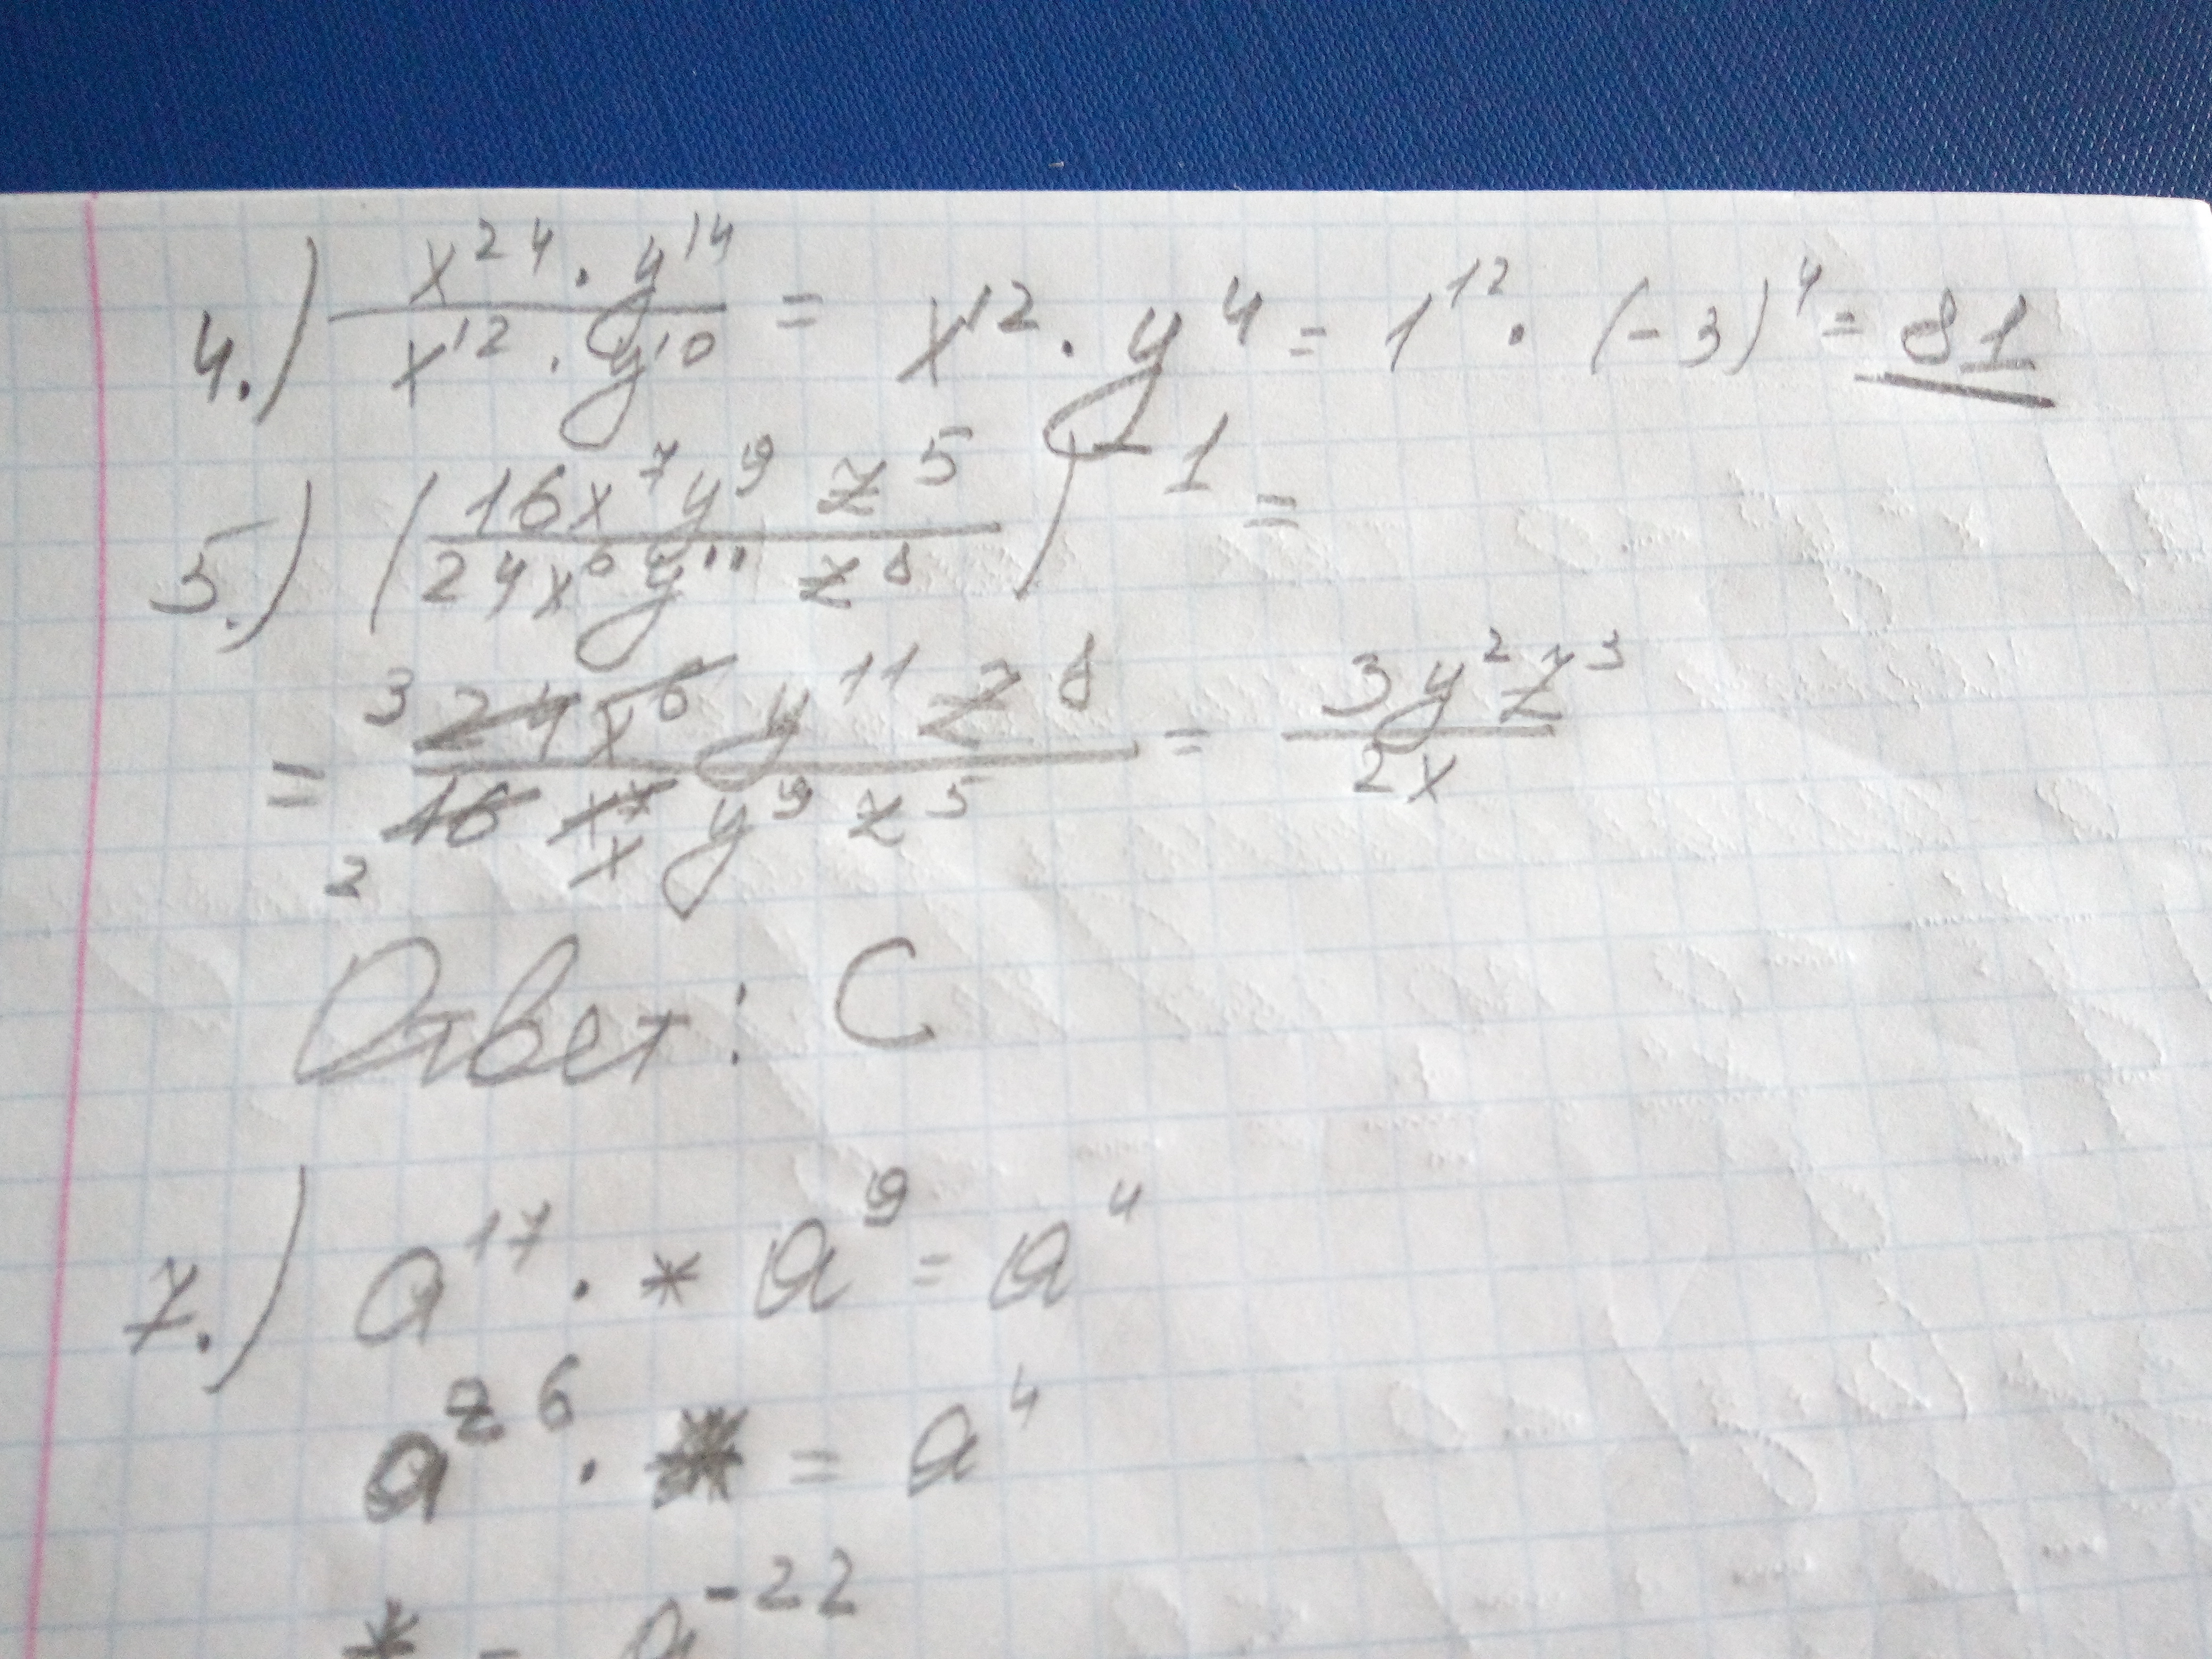 4.) x²⁴ · y¹⁴ / x¹² · y¹⁰ = x¹² · y⁴ = 1¹² · (-3)⁴ = 81
5.) (16x⁷y⁹ z⁵ / 24x⁶y¹¹ z⁸)⁻¹ =
= 3 24 x⁶ y¹¹ z⁸ / 2 16 x⁷ x y⁹ z⁵ = 3y²z³ / 2x
Ответ: C
7.) a¹⁷ · * a⁹ = a⁴
a²⁶ · * = a⁴
* = a⁻²²